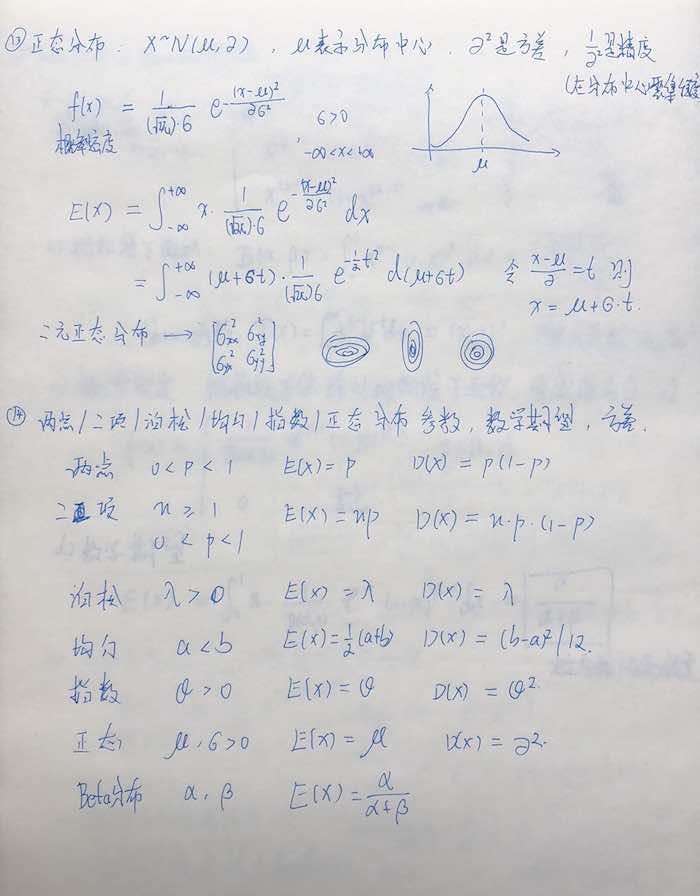 ⑬ 正态分布: X~N(μ,∂), μ表示分布中心. ∂²是方差, 1/∂²是精度
(在分布中心聚集程度
f(x) = 1/((√2π)·6) e^(-(x-μ)²/(26²))
6>0
概率密度
-∞<x<+∞
μ
E(X) = ∫_{-∞}^{+∞} x· 1/((√2π)·6) e^(-(x-μ)²/(26²)) dx
= ∫_{-∞}^{+∞} (μ+6t)· 1/((√2π)6) e^(-½t²) d(μ+6t) 令 (x-μ)/∂=t, 则
x = μ+6·t.
二元正态分布 → [6²xx 6²xy
6²yx 6²yy]
⑭ 两点/二项/泊松/均匀/指数/正态分布 参数, 数学期望, 方差.
两点 0<p<1 E(X)=p D(X)=p(1-p)
二项 n≥1 E(X)=np D(X)=n·p·(1-p)
0<p<1
泊松 λ>0 E(X)=λ D(X)=λ
均匀 a<b E(X)=½(a+b) D(X)=(b-a)²/12.
指数 θ>0 E(X)=θ D(X)=θ²
正态 μ,6>0 E(X)=μ D(X)=∂².
Beta分布 α,β E(X)=α/(α+β)